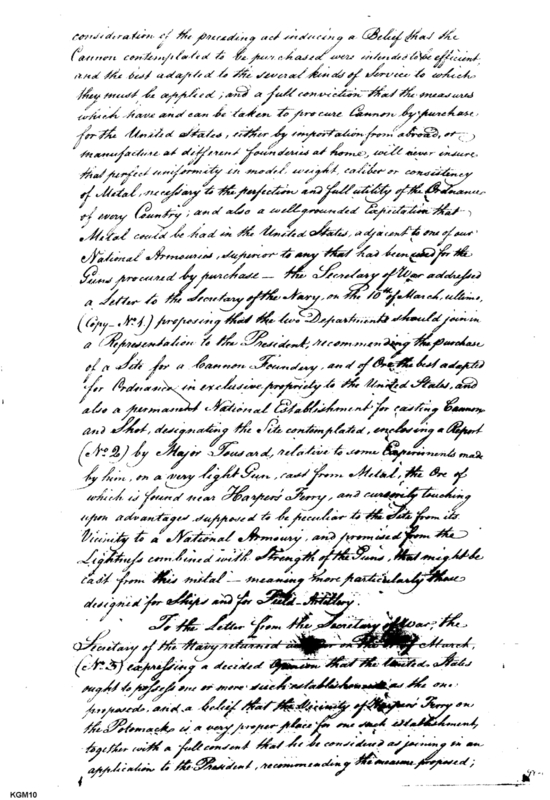 consideration of the preceding act inducing a Belief that the
Cannon contemplated to be purchased were intended to be efficient
and the best adapted to the several kinds of Service to which
they must be applied; and a full conviction that the measures
which have and can be taken to procure Cannon by purchase
for the United States, either by importation from abroad, or
manufacture at different founderies at home, will never insure
that perfect uniformity in model, weight, caliber or consistency
of Metal, necessary to the perfection and full utility of the Ordnance
of every Country; and also a well grounded Expectation that
Metal could be had in the United States, adjacent to one of our
National Armouries, superior to any that had been used for the
Guns procured by purchase — the Secretary of War addressed
a Letter to the Secretary of the Navy, on the 10th of March, ultimo,
(Copy No. 1.) proposing that the two Departments should join in
a Representation to the President, recommending the purchase
of a Site for a Cannon Foundery, and of Ore the best adapted
for Ordnance in exclusive propriety to the United States, and
also a permanent National Establishment for casting Cannon
and Shot, designating the Site contemplated, enclosing a Report
(No. 2) by Major Tousard, relative to some Experiments made
by him, on a very light Gun, cast from Metal, the Ore of
which is found near Harper's Ferry, and cursorily touching
upon advantages supposed to be peculiar to the Site from its
Vicinity to a National Armoury, and promised from the
Lightness combined with Strength of the Guns, that might be
cast from this metal — meaning more particularly those
designed for Ships and for Field-Artillery.
To the Letter from the Secretary of War, the
Secretary of the Navy returned on the of March,
(No. 3) expressing a decided Opinion that the United States
ought to possess one or more such establishments as the one
proposed, and a belief that the Vicinity of Harper's Ferry on
the Potomack is a very proper place for one such establishment,
together with a full consent that he be considered as joining in an
application to the President, recommending the measure proposed;
KGM10